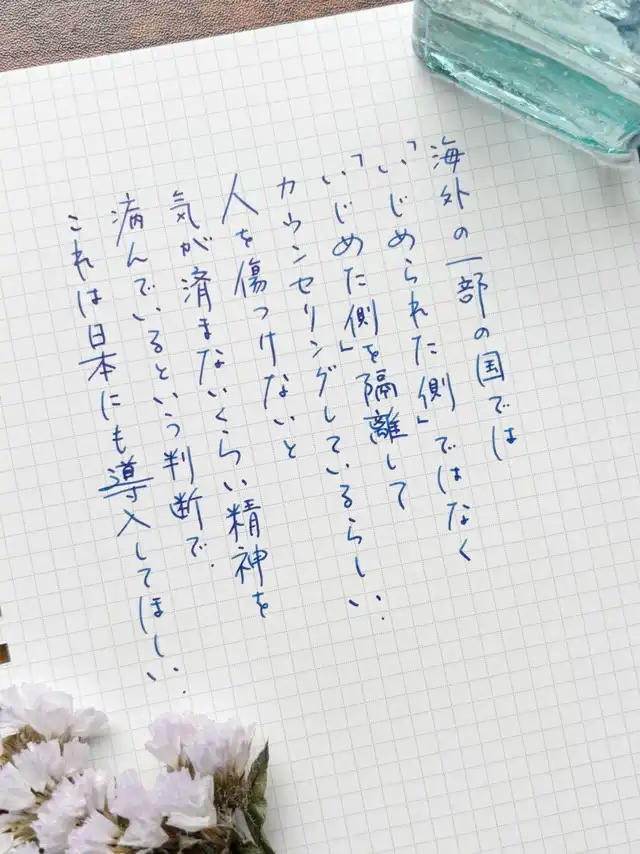 海外の一部の国では
「いじめられた側」ではなく
「いじめた側」を隔離して
カウンセリングしているらしい.
人を傷つけないと
気が済まないくらい精神を
病んでいるという判断で.
これは日本にも導入してほしい.